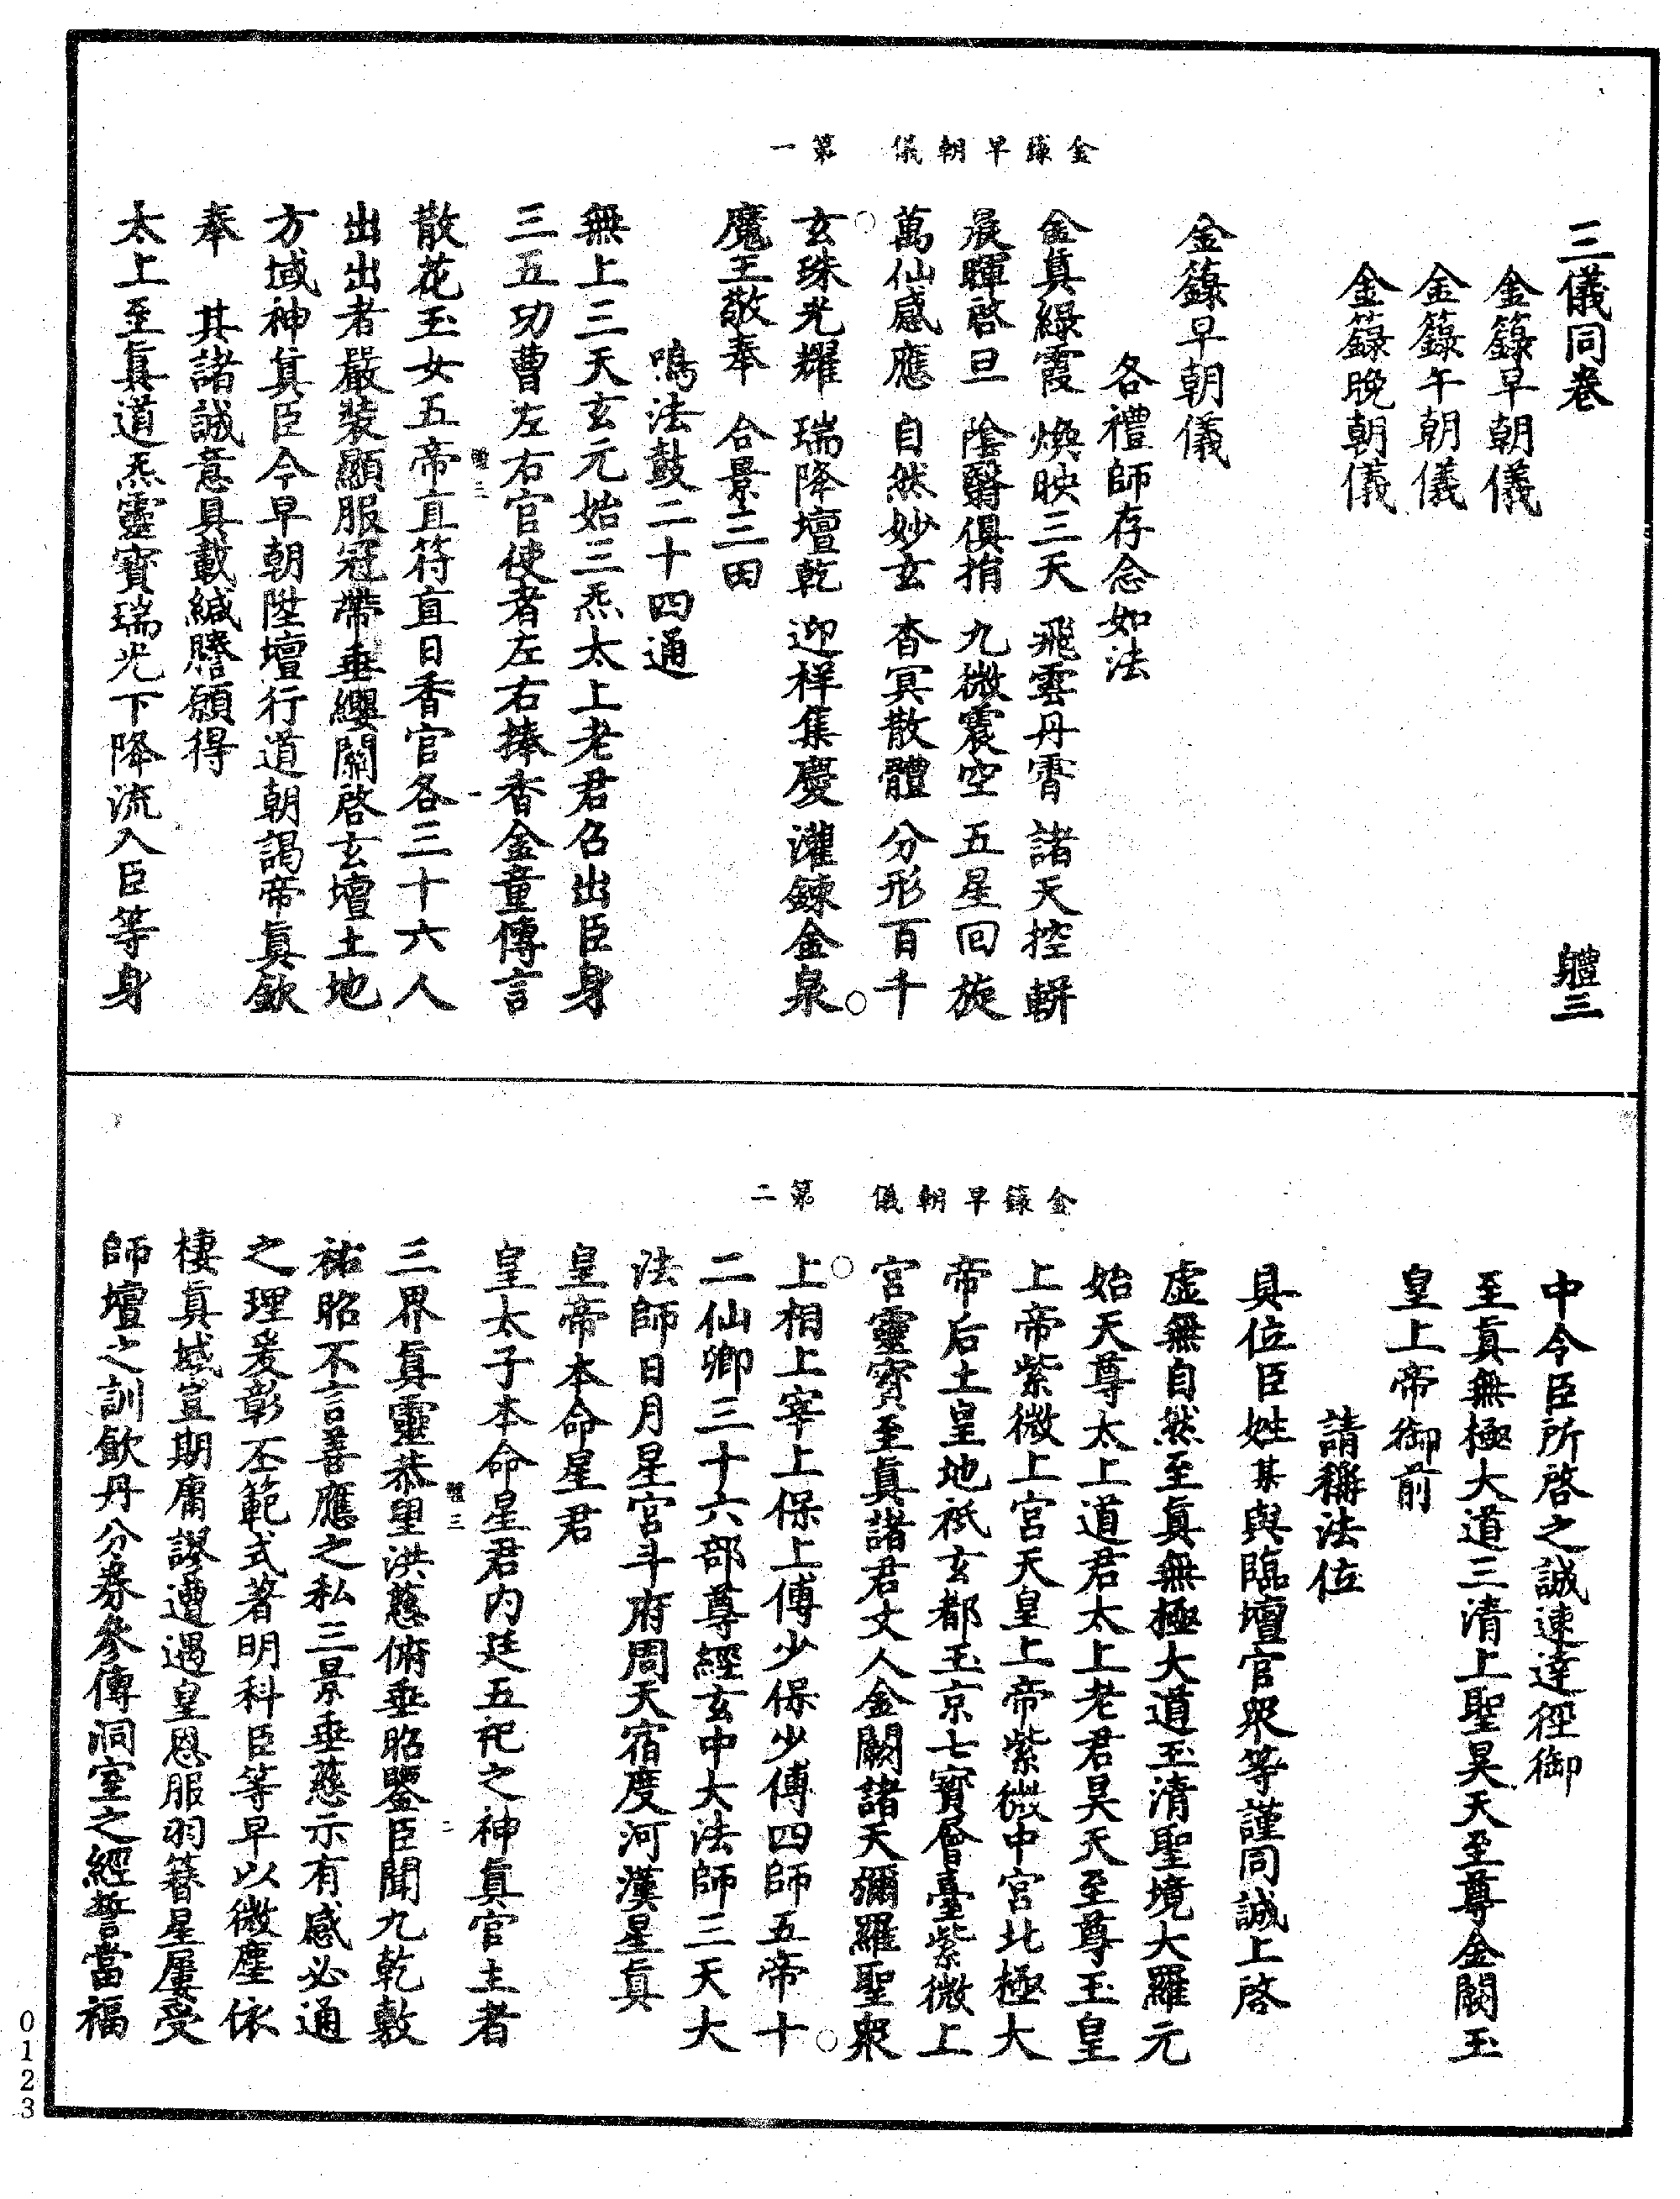 三儀同卷 體三
金籙早朝儀
金籙午朝儀
金籙晚朝儀
金籙早朝儀
各禮師存念如法
金眞綠霞 煥映三天 飛雲丹霄 諸天控軿
晨暉啓旦 陰翳俱捎 九微震空 五星回旋
萬仙感應 自然妙玄 杳冥散體 分形百千
玄珠光耀 瑞降壇乾 迎样集慶 灌鍊金泉
魔王敬奉 合景三田
鳴法鼓二十四通
無上三天玄元始三炁太上老君召出臣身
三五功曹左右官使者左右捧香金童傳言
散花玉女五帝直符直日香官各三十六人
出出者嚴裝顯服冠帶垂纓關啓玄壇土地
方域神眞臣今早朝陞壇行道朝謁帝眞欽
奉 其諸誠意具載緘謄願得
太上至眞道炁靈寶瑞光下降流入臣等身
金籙早朝儀 第一
體三
一
中令臣所啓之誠速達徑御
至眞無極大道三清上聖昊天至尊金闕玉
皇上帝御前
請稱法位
具位臣姓某與臨壇官衆等謹同誠上啓
虛無自然至眞無極大道玉清聖境大羅元
始天尊太上道君太上老君昊天至尊玉皇
上帝紫微上宮天皇上帝紫微中宮北極大
帝后土皇地祇玄都玉京七寶層臺紫微上
宮靈寶至眞諸君丈人金闕諸天彌羅聖衆
上相上宰上保上傅少保少傅四師五帝十
二仙卿三十六部尊經玄中大法師三天大
法師日月星宮斗府周天宿度河漢星眞
皇帝本命星君
皇太子本命星君内廷五祀之神眞官主者
三界眞靈恭望洪慈俯垂昭鑒臣聞九乾敷
祐昭不言善應之私三景垂慈示有感必通
之理爰彰丕範式著明科臣等早以微塵依
棲眞域豈期庸謬遭遇皇恩服羽簪星屢受
師壇之訓歃丹分券參傳洞室之經誓當福
金籙早朝儀 第二
體三
二
0123